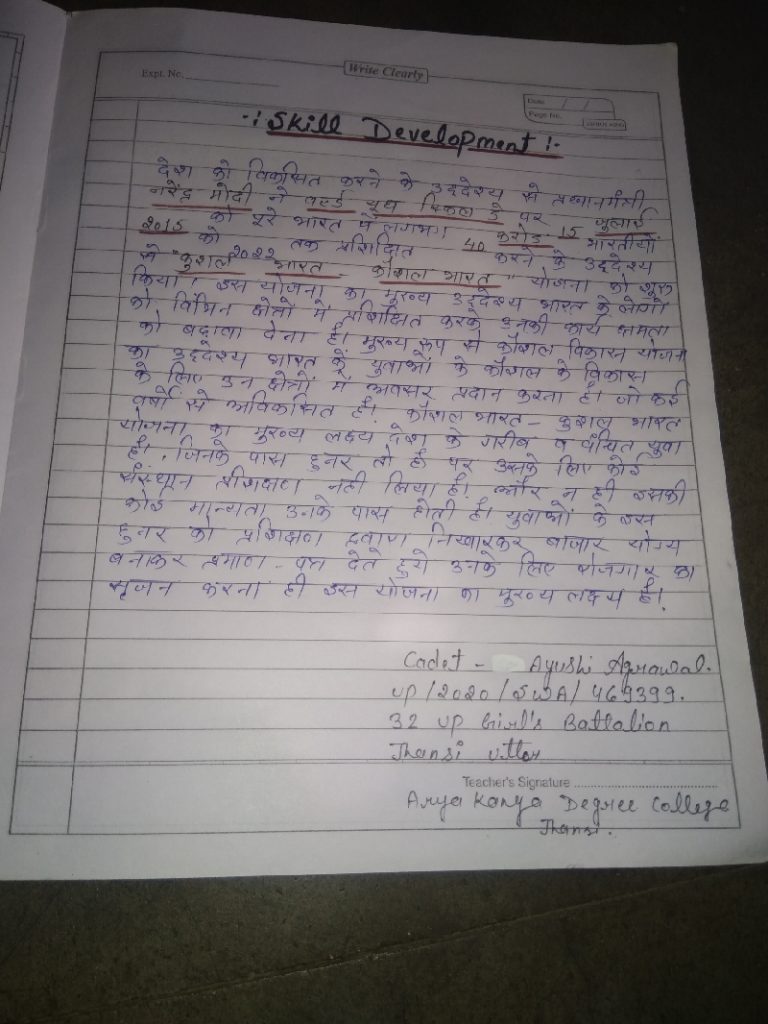 Write Clearly
Expt. No.
Date
Page No.
-: Skill Development :-
देश को विकसित करने के उद्देश्य से प्रधानमंत्री
नरेंद्र मोदी ने वर्ल्ड यूथ स्किल डे पर 15 जुलाई
2015 को पूरे भारत में लगभग 40 करोड़ भारतीयों
को 2022 तक प्रशिक्षित करने के उद्देश्य
से "कुशल भारत - कौशल भारत" योजना को शुरू
किया। इस योजना का मुख्य उद्देश्य भारत के लोगों
को विभिन क्षेत्रों में प्रशिक्षित करके उनकी कार्य क्षमता
को बढ़ावा देना है। मुख्य रूप से कौशल विकास योजना
का उद्देश्य भारत के युवाओं के कौशल के विकास
के लिए उन क्षेत्रों में अवसर प्रदान करना है। जो कई
वर्षों से अविकसित है। कौशल भारत - कुशल भारत
योजना का मुख्य लक्ष्य देश के गरीब व वंचित युवा
है। जिनके पास हुनर तो है पर उसके लिए कोई
संस्थान प्रशिक्षण नही लिया है। और न ही इसकी
कोई मान्यता उनके पास होती है। युवाओं के इस
हुनर को प्रशिक्षण द्वारा निखारकर बाजार योग्य
बनाकर प्रमाण-पत्र देते हुये उनके लिए रोजगार का
सृजन करना ही इस योजना का मुख्य लक्ष्य है।
Cadet - Ayushi Agrawal.
UP/2020/SWA/469399.
32 UP Girl's Battalion
Jhansi
Teacher's Signature
Arya Kanya Degree College
Jhansi.